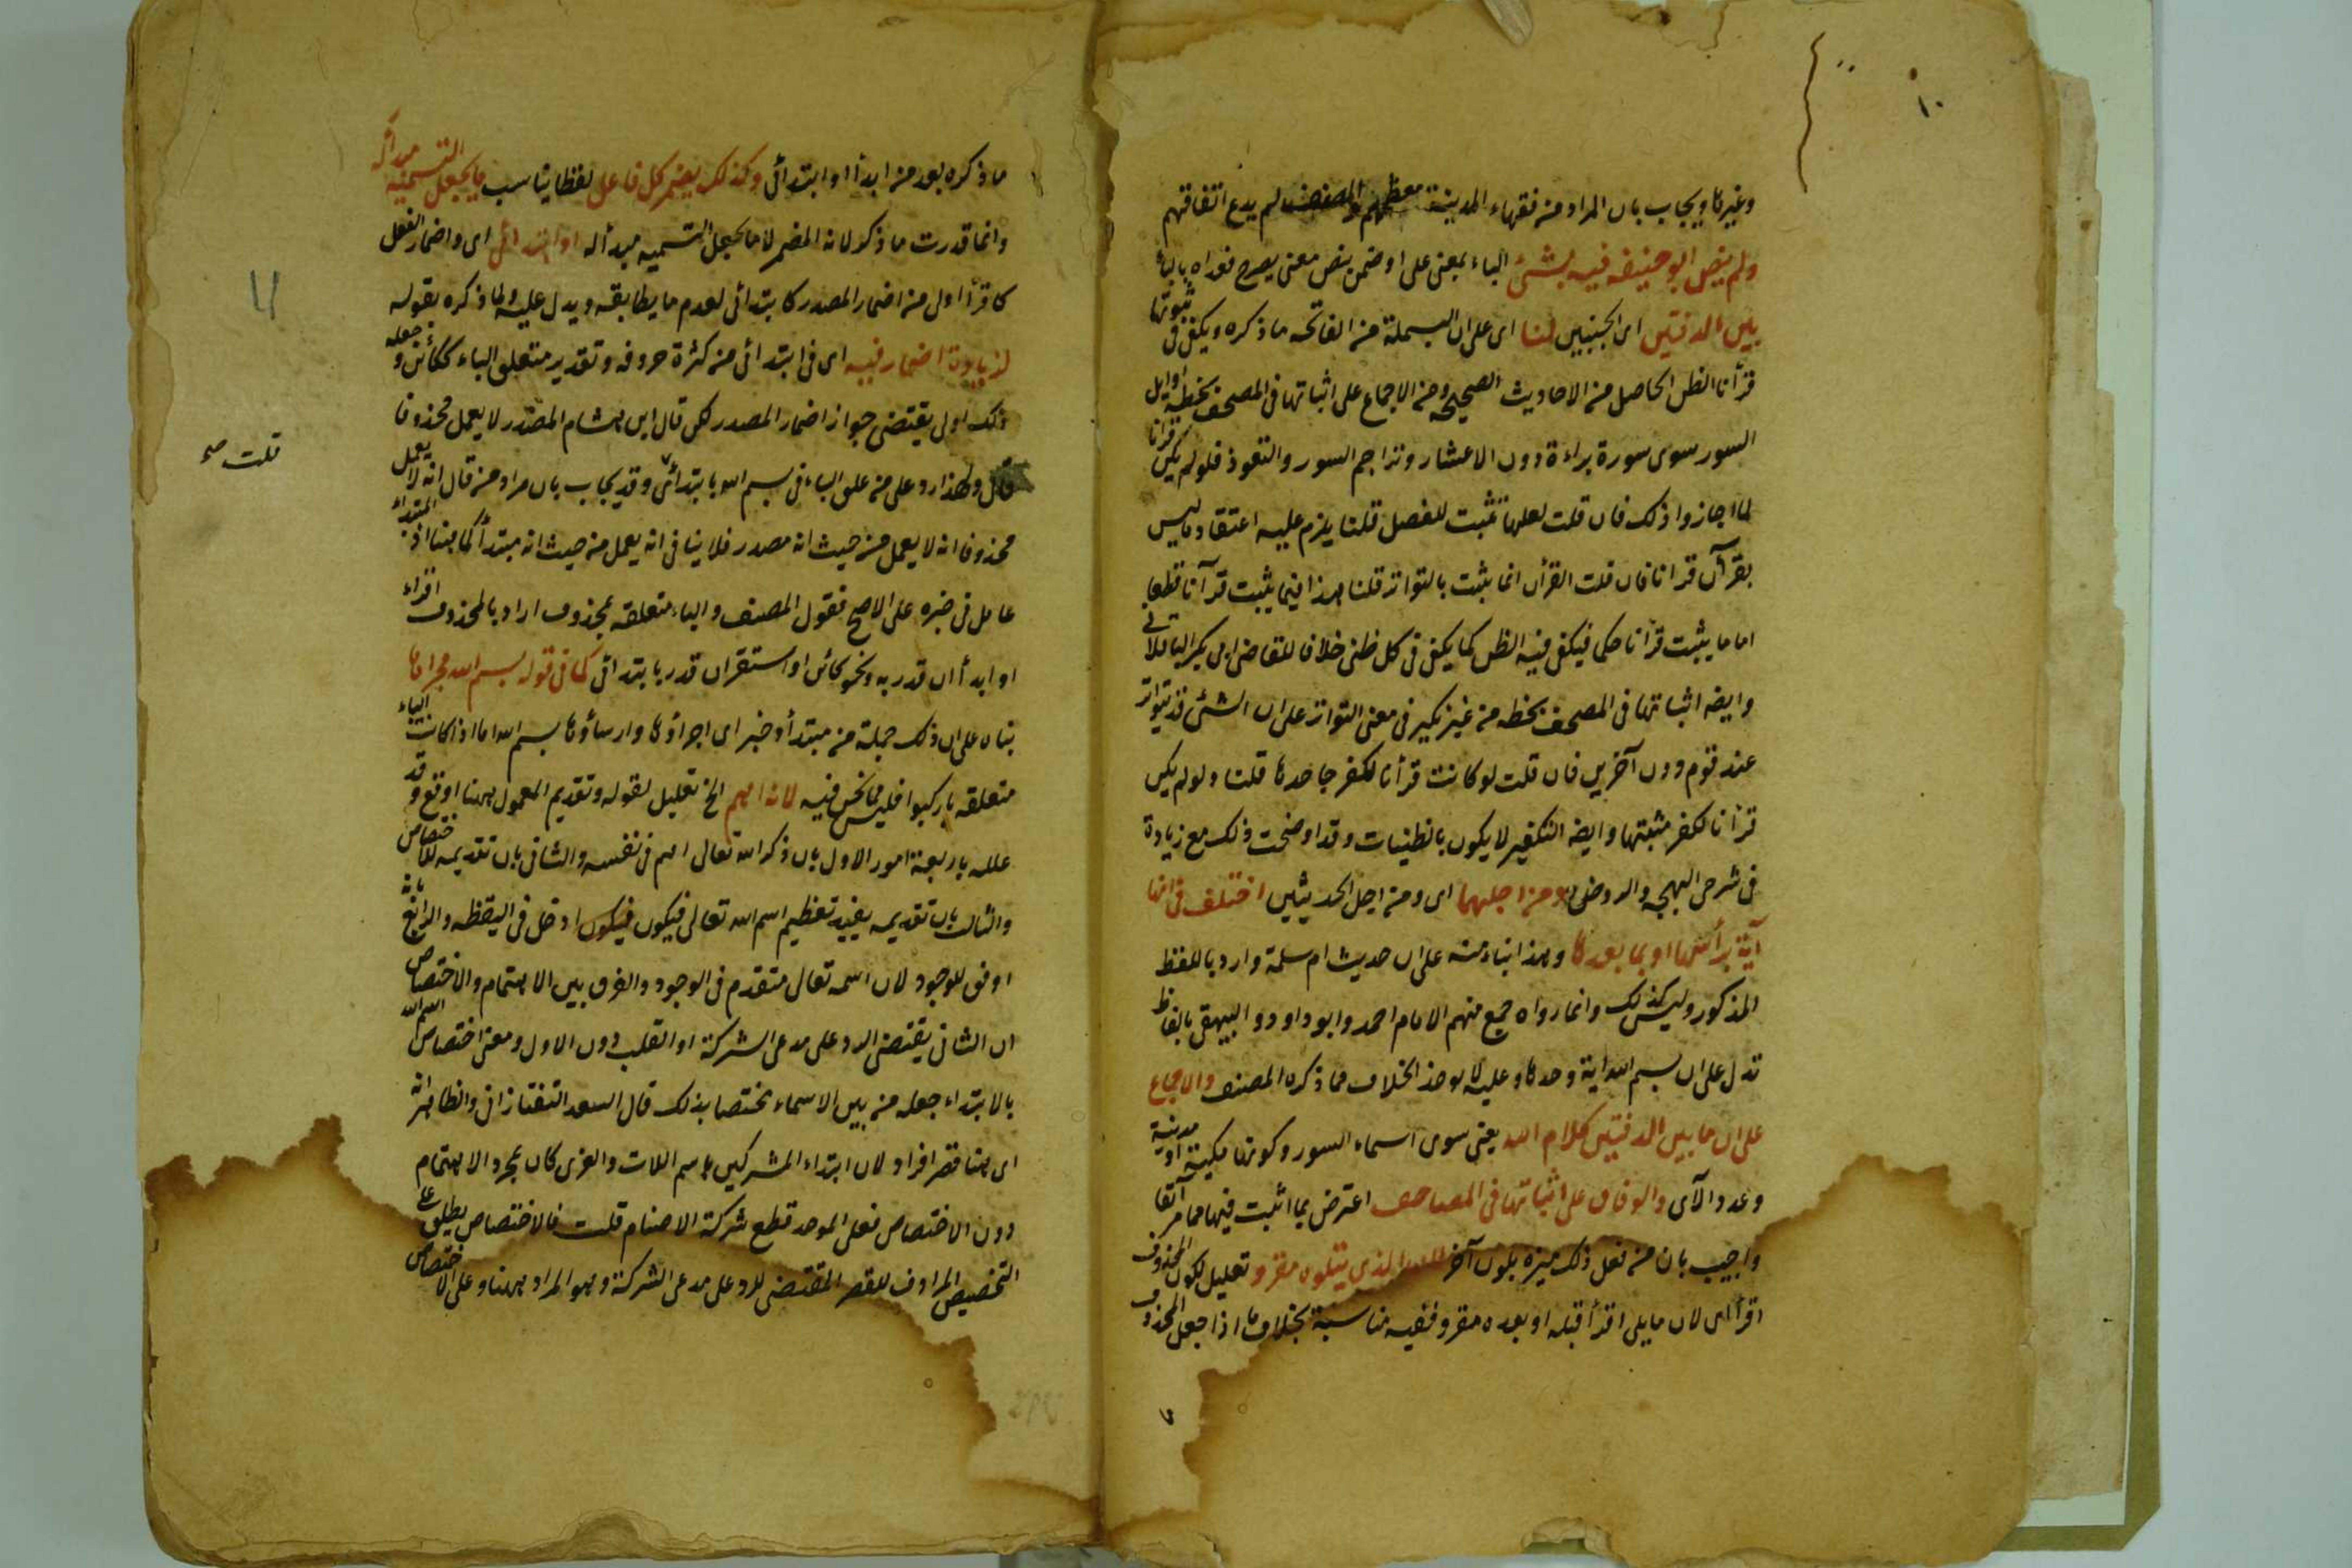 ١٠
وغيرها ويجاب بان المراد من فقهاء المدينة معظمهم والمصنف لم يدع اتفاقهم
ولم ينص ابو حنيفه فيه بشئ الباء بمعنى على او ضمن ينص معنى يصرح فعداه بالباء
بين الدفتين اى الجنبين لنا اى على ان البسملة من الفاتحه ما ذكره ويكفى فى ثبوتها
قرأنا الظن الحاصل من الاحاديث الصحيحه ومن الاجماع على اثباتها فى المصحف بخطه اوايل
السور سوى سورة براءة دون الاعشار وتراجم السور والتعوذ فلو لم يكن قرانا
لما اجازوا ذلك فان قلت لعلها ثبتت للفصل قلنا يلزم عليه اعتقاد ما ليس
بقرآن قرانا فان قلت القرأن انما يثبت بالتواتر قلنا هذا فيما يثبت قرآنا قطعا
اما ما يثبت قرأنا حكما فيكفى فيه الظن كما يكفى فى كل ظنى خلافا للقاضى ابى بكر الباقلانى
وايضه اثباتها فى المصحف بخطه من غير نكير فى معنى التواتر على ان الشئ قد يتواتر
عند قوم دون آخرين فان قلت لو كانت قرأنا لكفر جاحدها قلنا ولو لم يكن
قرأنا لكفر مثبتها وايضه التكفير لا يكون بالظنيات وقد اوضحت ذلك مع زيادة
فى شرحى البهجه والروض ومن اجلهما اى ومن اجل الحديثين اختلف فى انها
آية برأسها او بما بعدها وهذا ابناء منه على ان حديث ام سلمة وارد باللفظ
المذكور وليس كذلك وانما رواه جمع منهم الامام احمد وابو داود والبيهقى بالفاظ
تدل على ان بسم الله اية وحدها وعليه لا يوخذ الخلاف مما ذكره المصنف والاجماع
على ان ما بين الدفتين كلام الله يعنى سوى اسماء السور وكونها مكية او مدنية
وعدد الآى والوفاق على اثباتها فى المصاحف اعترض بما اثبت فيها مما مر آنفا
واجيب بان من فعل ذلك ميزه بلون آخر الذى يتلوه مقرو تعليل لكون المحذوف
اقرأ اى لان ما يلى اقرأ قبله او بعده مقرو ففيه مناسبة بخلاف ما اذا جعل المحذوف
ما ذكره بعد من ابدأ او ابتدائى وكذلك يضمر كل فاعل لفظا يناسب ما يجعل التسميه مبدأ له
وانما قدرت ما ذكر لانه المضمر لا ما يجعل التسميه مبدأ له او ابتدائى اى واضمار الفعل
كاقرأ اولى من اضمار المصدر كابتدائى لعدم ما يطابقه ويدل عليه ولما ذكره بقوله
لزيادة اضمار فيه اى فى ابتدائى من كثرة حروفه وتقدير متعلق الباء ككائن وجعله
ذلك اولى يقتضى جواز اضمار المصدر لكن قال ابن هشام المصدر لا يعمل محذوفا
قلت صح
قال ولهذا رد على من علق الباء فى بسم الله بابتدائى وقد يجاب بان مراد من قال انه لا يعمل
محذوفا انه لا يعمل من حيث انه مصدر فلا ينافى انه يعمل من حيث انه مبتدأ كما هنا اذ المبتداء
عامل فى خبره على الاصح فقول المصنف والباء متعلقه بمحذوف اراد بالمحذوف اقراء
او ابدأ ان قدر به ونحو كائن او استقر ان قدر بابتدائى كما فى قوله بسم الله مجراها
بناه على ان ذلك جملة من مبتدأ وخبر اى اجراؤها وارساؤها بسم الله اما اذا كانت الباء
متعلقه باركبوا فليس مما نحن فيه لانه اهم الخ تعليل لقوله وتقديم المعمول ههنا اوقع وقد
علله باربعة امور الاول بان ذكر الله تعالى اهم فى نفسه والثانى بان تقديمه للاختصاص
والثالث بان تقديمه يفيد تعظيم اسم الله تعالى فيكون فيكون ادخل فى اليقظه والرابع بانه
اوفق للوجود لان اسمه تعالى متقدم فى الوجود والفرق بين الاهتمام والاختصاص
ان الثانى يقتضى الرد على مدعى الشركة او القلب دون الاول ومعنى اختصاص اسم الله
بالابتداء جعله من بين الاسماء مختصا بذلك قال السعد التفتازانى والظاهر انه
اى هنا قصر افراد لان ابتداء المشركين باسم اللات والعزى كان لمجرد الاهتمام
دون الاختصاص فعلى الموحد قطع شركة الاصنام قلت فالاختصاص يطلق على
التخصيص المرادف للقصر المقتضى للرد على مدعى الشركة وهو المراد ههنا وعلى الاختصاص